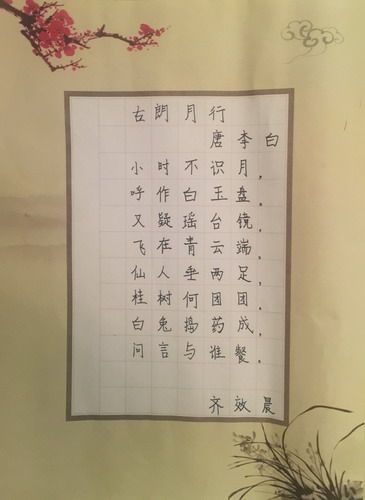 古朗月行
唐李白
小时不识月，
呼作白玉盘，
又疑瑶台镜，
飞在青云端，
仙人垂两足，
桂树何团团，
白兔捣药成，
问言与谁餐，
齐效晨